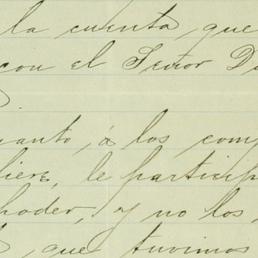 la cuenta que
con el Señor D
uanto, á los com
biere, le particip
poder, y no los
que tuvimos